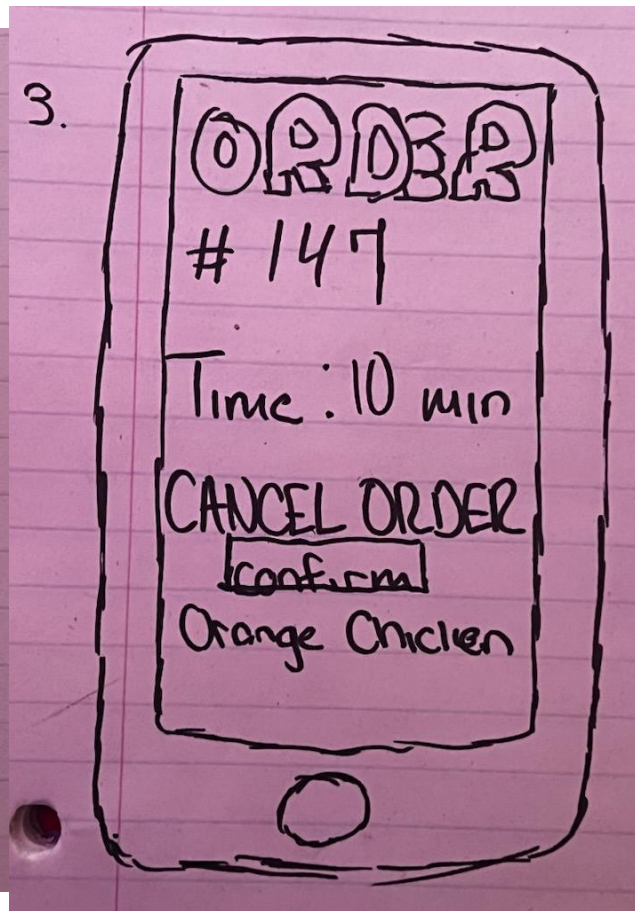 3.
ORDER
# 147
Time: 10 min
CANCEL ORDER
confirm
Orange Chicken